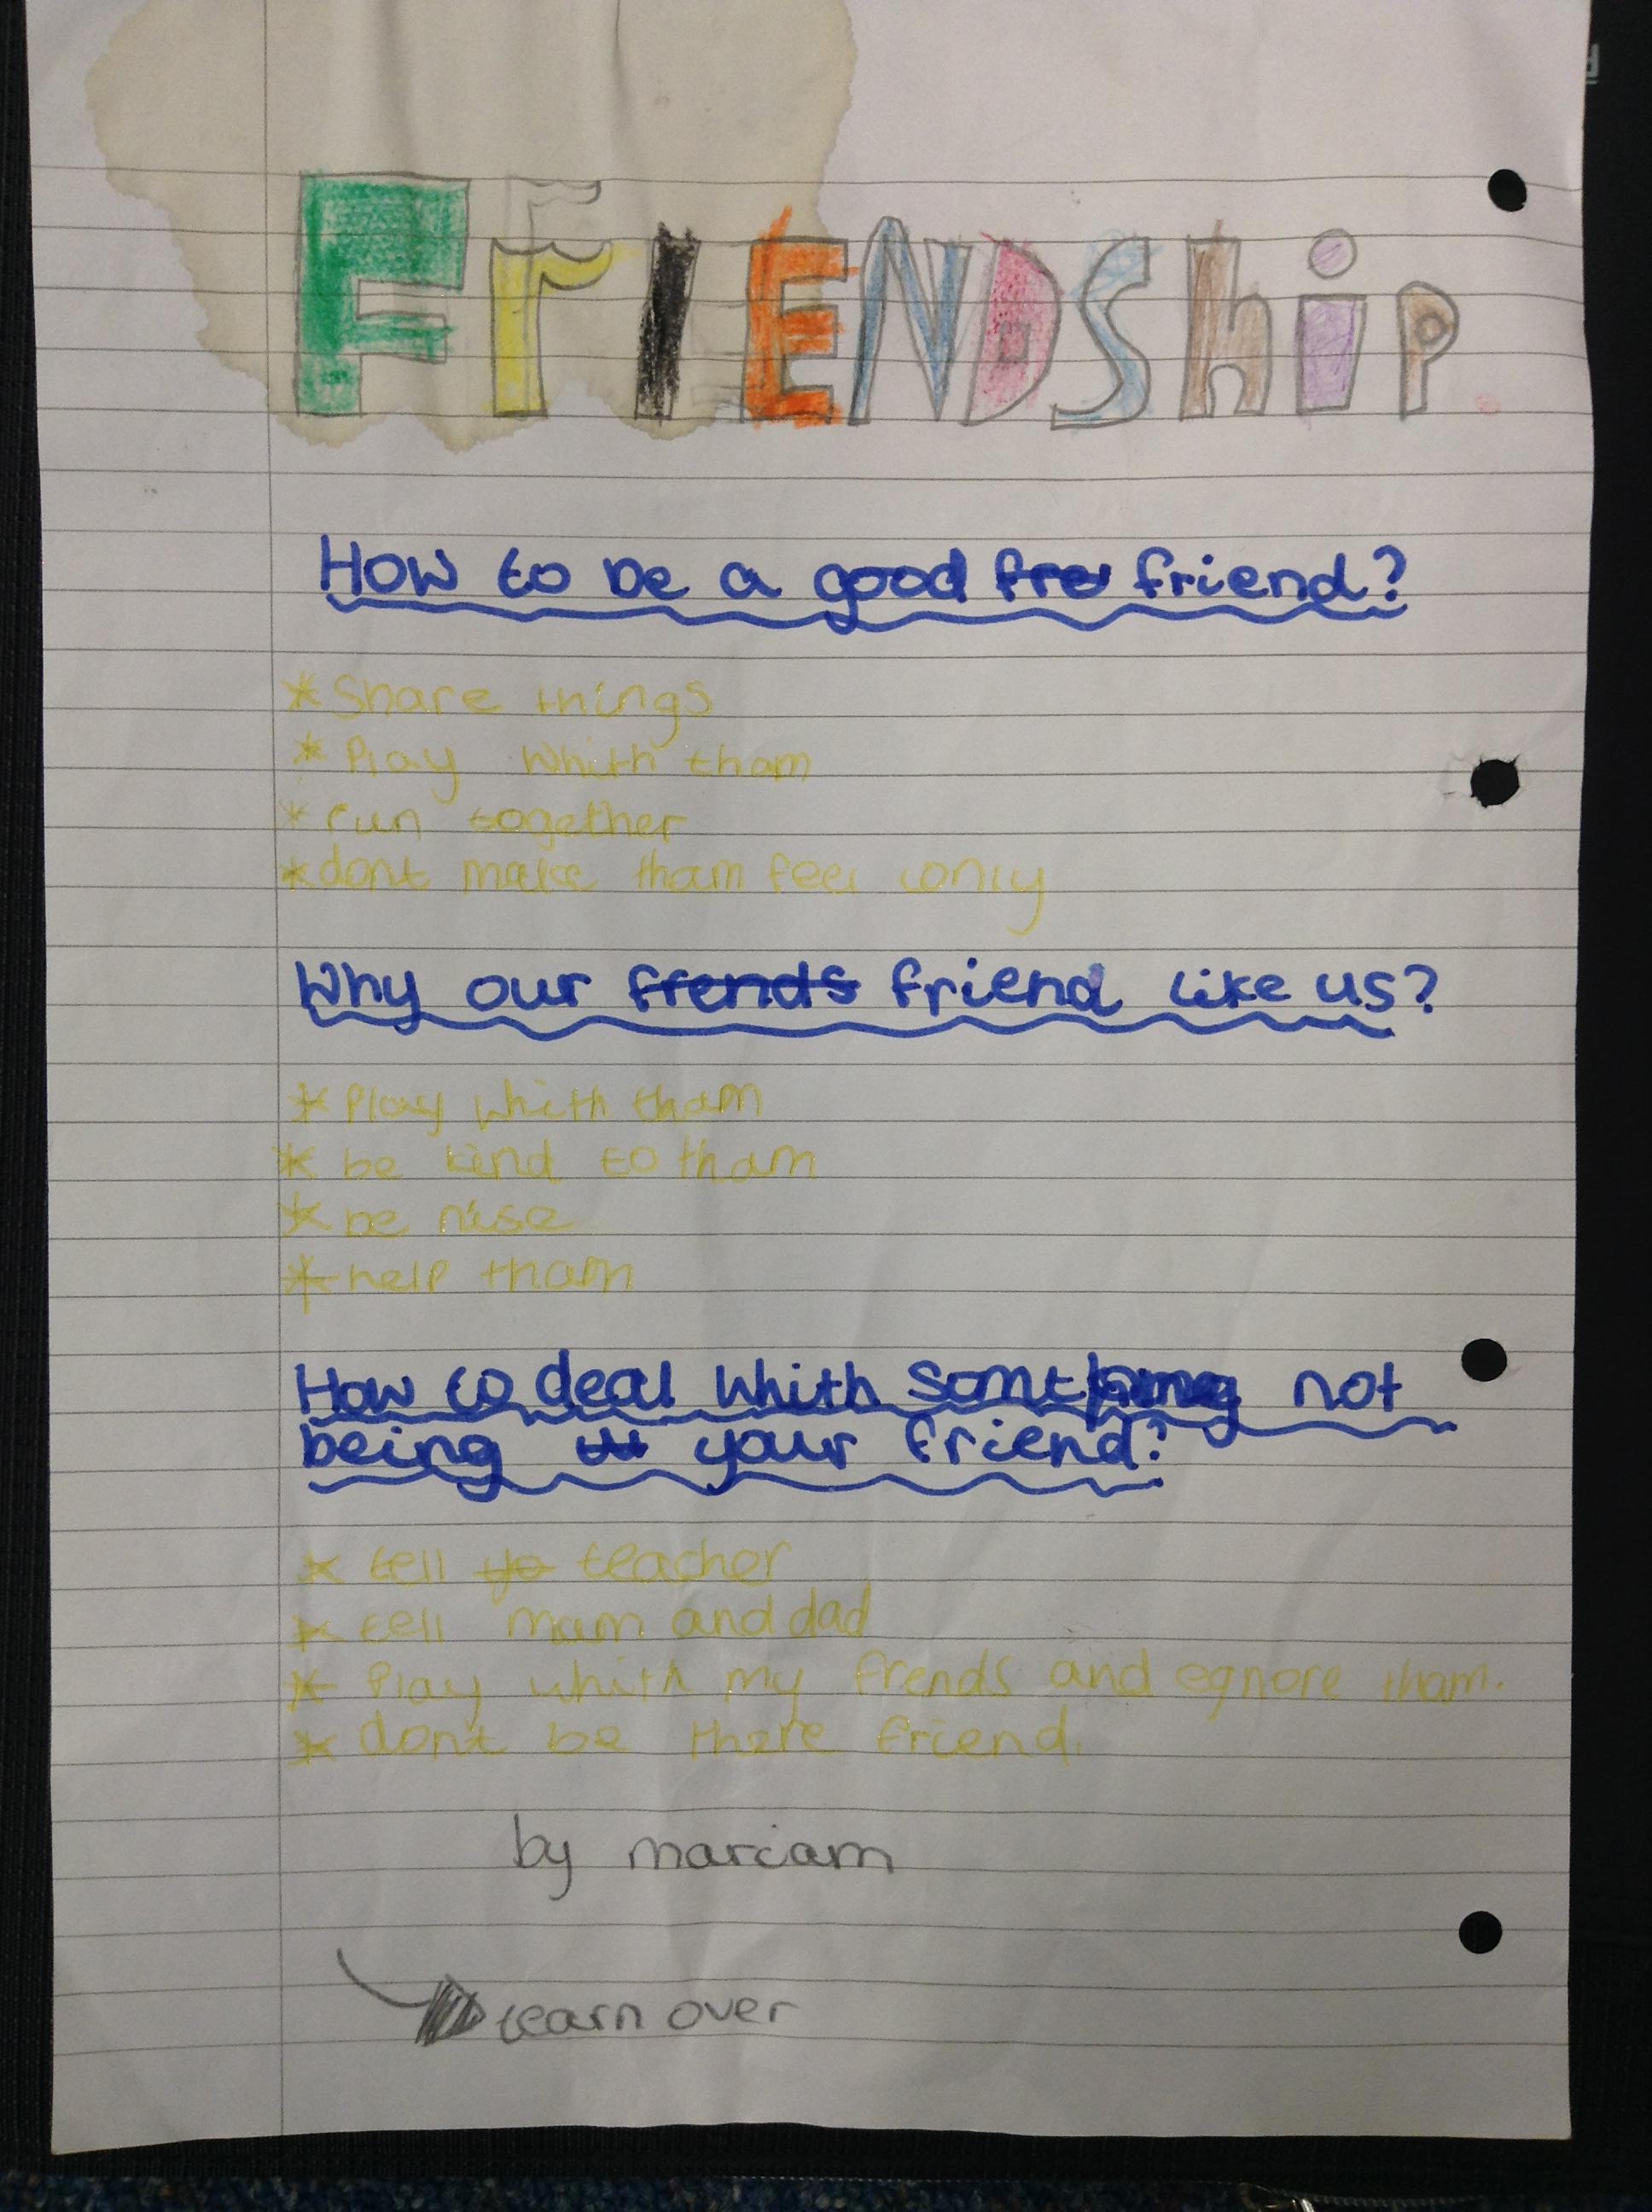 FrIENDShip
How to be a good friend?
* Share things
* Play whith tham
* run together
* dont make tham feel lonly
Why our frends friend like us?
* Play whith tham
* be kind to tham
* be nise
* help tham
How to deal whith not
being your friend?
* tell yo teacher
* tell mum and dad
* Play whith my frends and egnore tham.
* dont be there friend.
by mariam
tearn over